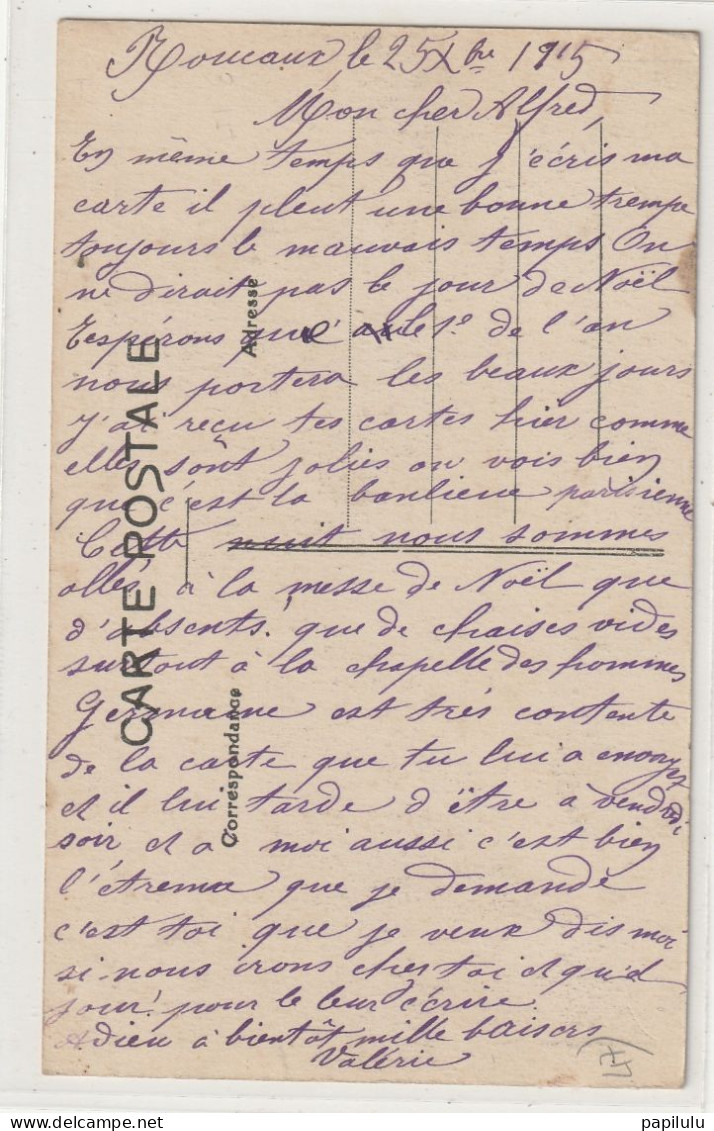 Roucaux le 25 Xbre 1915
Mon cher Alfred,
En même temps que j'écris ma
carte il pleut une bonne trempe
toujours le mauvais temps On
ne dirait pas le jour de Noël
Espérons que le 1º de l'an
nous portera les beaux jours
J'ai reçu tes cartes hier comme
elles sont jolies on vois bien
que c'est la banlieue parisienne
Cette nuit nous sommes
allés à la messe de Noël que
d'absents, que de chaises vides
surtout à la chapelle des hommes
Germaine est très contente
de la carte que tu lui a envoyez
et il lui tarde d'être à vendredi
soir et a moi aussi c'est bien
l'étrema que je demande
c'est toi que je veux dis moi
si nous irons cher toi et quel
jour, pour le leur écrire
Adieu à bientôt mille baisers
Valérie
CARTE POSTALE
Correspondance
Adresse
papilulu